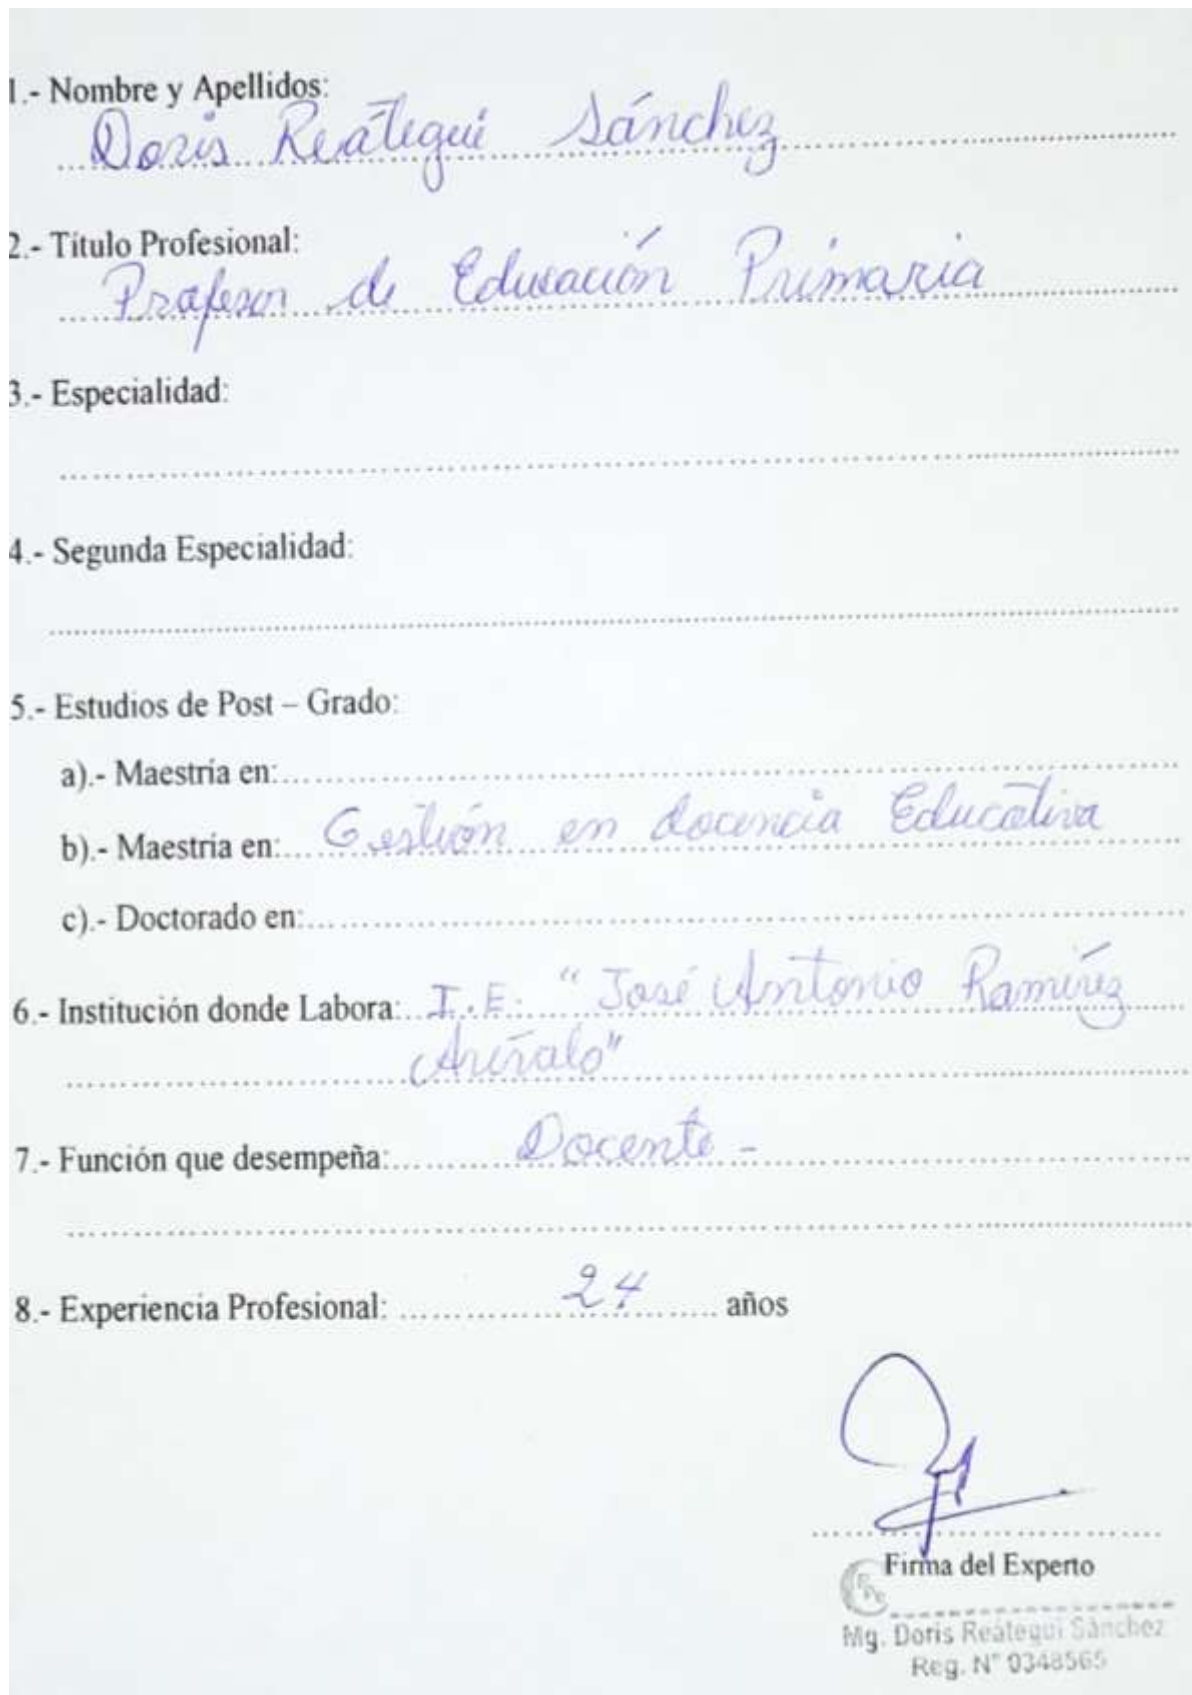 1.- Nombre y Apellidos:
Doris Reátegui Sánchez
2.- Título Profesional:
Profesor de Educación Primaria
3.- Especialidad:
4.- Segunda Especialidad:
5.- Estudios de Post – Grado:
a).- Maestría en:
b).- Maestría en: Gestión en docencia Educativa
c).- Doctorado en:
6.- Institución donde Labora: I.E. "José Antonio Ramírez
Arévalo"
7.- Función que desempeña: Docente -
8.- Experiencia Profesional: 24 años
Firma del Experto
Mg. Doris Reátegui Sánchez
Reg. N° 0348565